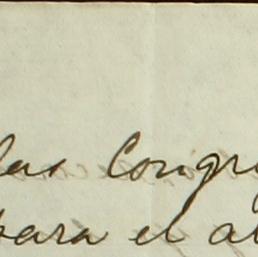 las Congr
para el a